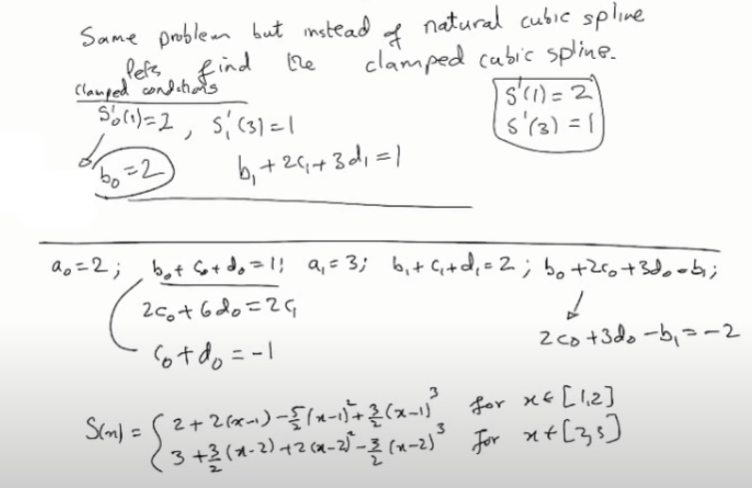 Same problem but instead of natural cubic spline
lets find the clamped cubic spline.
Clamped conditions
S'(1) = 2
S'(3) = 1
S₀'(1)=2 , S₁'(3)=1
b₀=2
b₁+2c₁+3d₁=1
a₀=2; b₀+c₀+d₀=1; a₁=3; b₁+c₁+d₁=2; b₀+2c₀+3d₀=b₁;
2c₀+6d₀=2c₁
2c₀+3d₀-b₁=-2
c₀+d₀=-1
S(x) = { 2+2(x-1)-5/2(x-1)²+3/2(x-1)³ for x∈[1,2]
3+3/2(x-2)+2(x-2)²-3/2(x-2)³ for x∈[2,3]